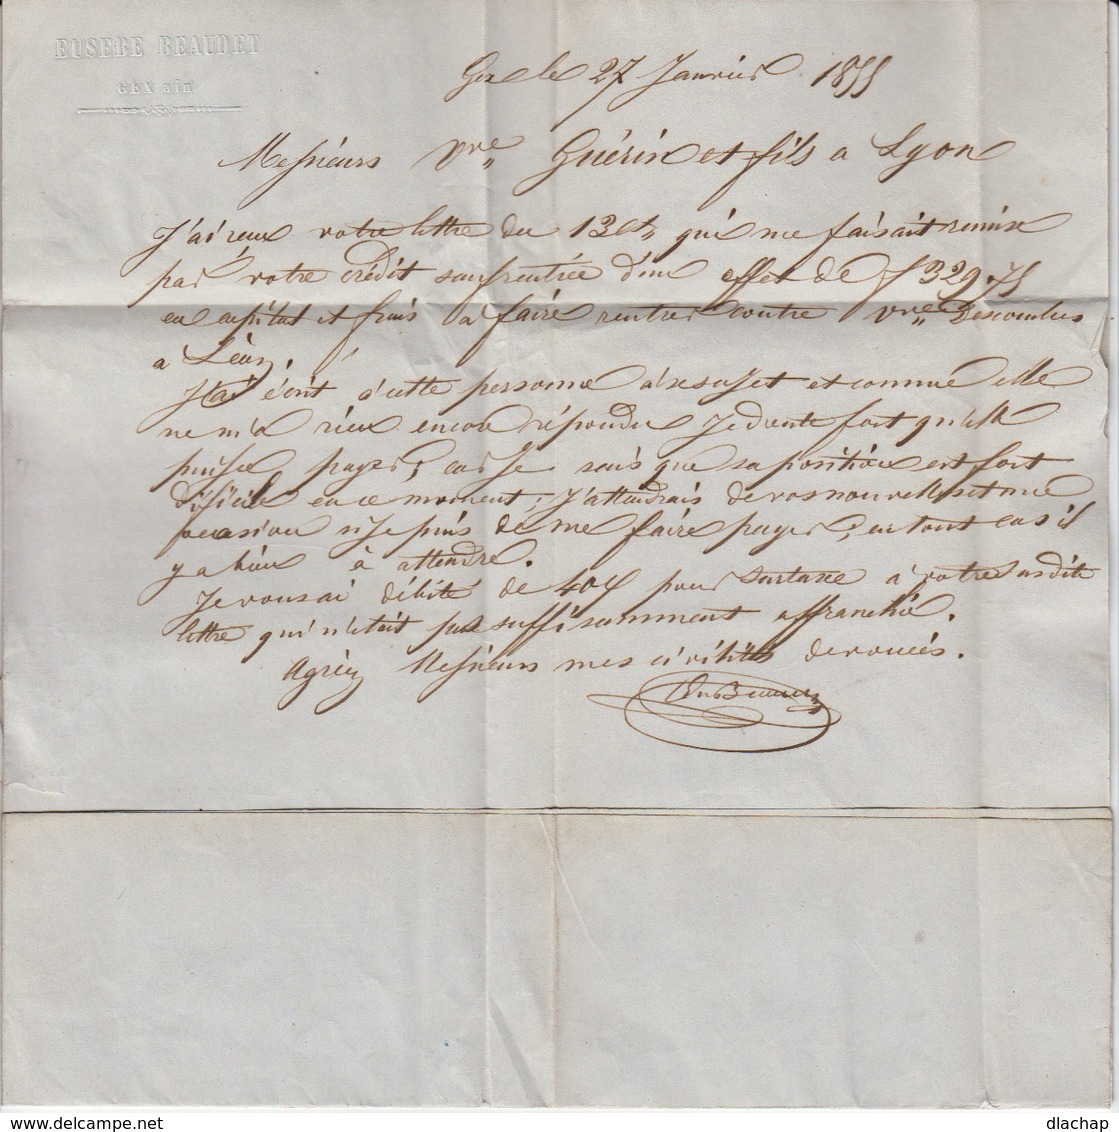 EUSEBE BEAUDET
GEX ain
Gex le 27 Janvier 1855
Messieurs Vve Guérin et fils a Lyon
J'ai reçu votre lettre du 13 ct qui me faisait remise
par votre crédit sauf rentrée d'un effet de f 329.75
en capital et frais a faire rentrer contre Vve Descombes
a
J'ai écrit a cette personne a ce sujet et comme elle
ne m'a rien encore répondu Je doute fort qu'elle
puisse payer, car Je sais que sa position est fort
dificile en ce moment; J'attendrais de vos nouvelles et une
occasion si Je puis de me faire payer, en tout cas il
y a bien à attendre.
Je vous ai débité de 40c pour surtaxe a votre susdite
lettre qui n'était pas suffisamment affranchie.
Agréez Messieurs mes civilités dévouées.
dlachap